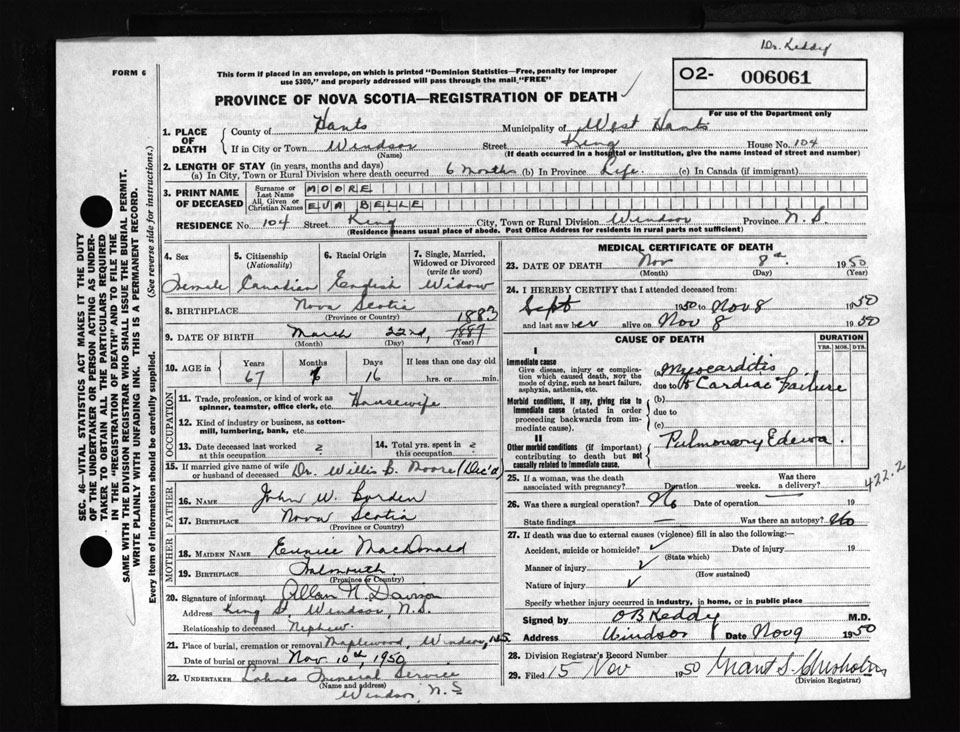 Dr. Keddy
FORM 6
This form if placed in an envelope, on which is printed "Dominion Statistics—Free, penalty for improper
use $300," and properly addressed will pass through the mail "FREE"
O2- 006061
PROVINCE OF NOVA SCOTIA—REGISTRATION OF DEATH
For use of the Department only
1. PLACE OF DEATH
County of Hants Municipality of West Hants
If in City or Town Windsor Street King House No. 104
(Name) (If death occurred in a hospital or institution, give the name instead of street and number)
2. LENGTH OF STAY (in years, months and days)
(a) In City, Town or Rural Division where death occurred 6 months (b) In Province Life (c) In Canada (if immigrant)
3. PRINT NAME OF DECEASED
Surname or Last Name MOORE
All, Given or Christian Names EVA BELLE
RESIDENCE No. 104 Street King City, Town or Rural Division Windsor Province N.S.
(Residence means usual place of abode. Post Office Address for residents in rural parts not sufficient)
4. Sex Female
5. Citizenship (Nationality) Canadian
6. Racial Origin English
7. Single, Married, Widowed or Divorced (write the word) Widow
8. BIRTHPLACE Nova Scotia
(Province or Country)
1883
9. DATE OF BIRTH March 22nd, 1887
(Month) (Day) (Year)
10. AGE in Years Months Days If less than one day old
67 16 hrs. or min.
OCCUPATION
11. Trade, profession, or kind of work as
spinner, teamster, office clerk, etc. Housewife
12. Kind of industry or business, as cotton-
mill, lumbering, bank, etc.
13. Date deceased last worked at this occupation ?
14. Total yrs. spent in this occupation ?
15. If married give name of wife
or husband of deceased Dr. Willis B. Moore (Dec'd)
FATHER
16. NAME John W. Borden
17. BIRTHPLACE Nova Scotia
(Province or Country)
MOTHER
18. MAIDEN NAME Eunice MacDonald
19. BIRTHPLACE Falmouth
(Province or Country)
20. Signature of informant Allan N. Davison
Address King St. Windsor, N.S.
Relationship to deceased Nephew
21. Place of burial, cremation or removal Maplewood, Windsor, N.S.
Date of burial or removal Nov 10th, 1950
22. UNDERTAKER Funeral Service
(Name and address)
Windsor, N.S
MEDICAL CERTIFICATE OF DEATH
23. DATE OF DEATH Nov 8th 1950
(Month) (Day) (Year)
24. I HEREBY CERTIFY that I attended deceased from:
Sept 1950 to Nov 8 1950
and last saw her alive on Nov 8 1950
CAUSE OF DEATH
DURATION
YRS. MOS. DYS.
I
Immediate cause
Give disease, injury or complica-
tion which caused death, NOT the
mode of dying, such as heart failure,
asphyxia, asthenia, etc.
(a) Myocarditis
due to Cardiac Failure
Morbid conditions, if any, giving rise to
immediate cause (stated in order
proceeding backwards from im-
mediate cause).
(b)
due to
(c)
II
Other morbid conditions (if important)
contributing to death but not
causally related to immediate cause.
Pulmonary Edema.
422.2
25. If a woman, was the death
associated with pregnancy? Duration weeks. Was there a delivery?
26. Was there a surgical operation? No Date of operation 19
State findings — Was there an autopsy? No
27. If death was due to external causes (violence) fill in also the following:—
Accident, suicide or homicide? Date of injury 19
(State which)
Manner of injury
(How sustained)
Nature of injury
Specify whether injury occurred in industry, in home, or in public place
Signed by OB Keddy M.D.
Address Windsor Date Nov 9 1950
28. Division Registrar's Record Number
29. Filed 15 Nov 1950 Grant S. Chisholm
(Division Registrar)
SEC. 46—VITAL STATISTICS ACT MAKES IT THE DUTY
OF THE UNDERTAKER OR PERSON ACTING AS UNDER-
TAKER TO OBTAIN ALL THE PARTICULARS REQUIRED
IN THE "REGISTRATION OF DEATH" AND TO FILE THE
SAME WITH THE DIVISION REGISTRAR WHO SHALL ISSUE THE BURIAL PERMIT.
WRITE PLAINLY WITH UNFADING INK. THIS IS A PERMANENT RECORD.
Every item of information should be carefully supplied. (See reverse side for instructions.)